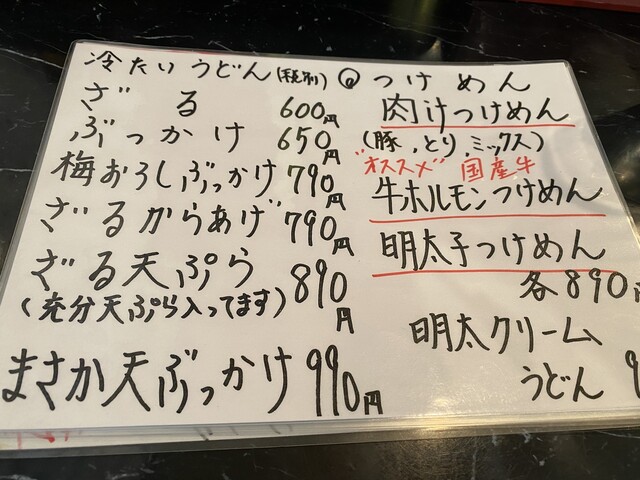 冷たいうどん(税別)
ざる 600円
ぶっかけ 650円
梅おろしぶっかけ 790円
ざるからあげ 790円
ざる天ぷら 890円
(充分天ぷら入ってます)
まさか天ぶっかけ 990円
つけめん
肉汁つけめん
(豚、とり、ミックス)
"オススメ" 国産牛
牛ホルモンつけめん
明太子つけめん
各890円
明太クリーム
うどん 9